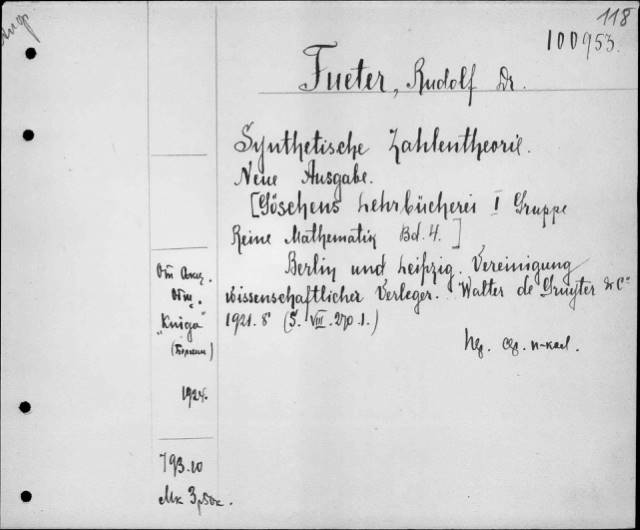 118
100953.
Fueter, Rudolf Dr.
Synthetische Zahlentheorie.
Neue Ausgabe.
[Göschens Lehrbücherei I Gruppe
Reine Mathematik Bd. 4. ]
Berlin und Leipzig. Vereinigung
wissenschaftlicher Verleger. Walter de Gruyter & Cº
1921. 8 (S. VIII. 270. 1.)
От
"Kniga"
1924.
793.10
Mk